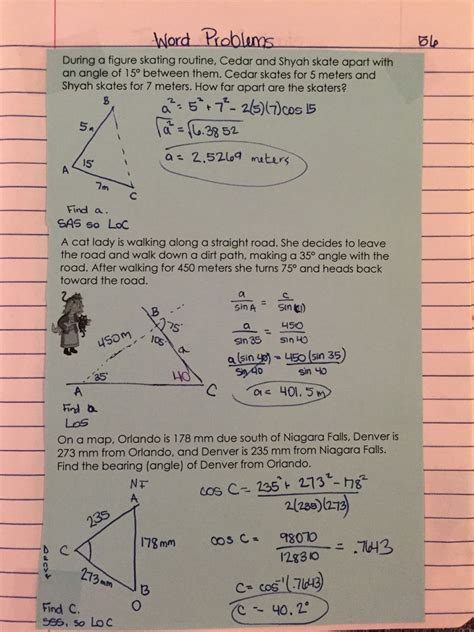 Word Problems
56
During a figure skating routine, Cedar and Shyah skate apart with
an angle of 15° between them. Cedar skates for 5 meters and
Shyah skates for 7 meters. How far apart are the skaters?
B
a² = 5² + 7² - 2(5)(7)cos 15
5m
√a² = √6.3852
A
15°
a = 2.5269 meters
7m
C
Find a.
SAS so LoC
A cat lady is walking along a straight road. She decides to leave
the road and walk down a dirt path, making a 35° angle with the
road. After walking for 450 meters she turns 75° and heads back
toward the road.
a/sin A = c/sin C
B
75°
450m
105
a
a/sin 35 = 450/sin 40
a(sin 40)/sin 40 = 450(sin 35)/sin 40
35°
40
A
C
a = 401.5m
Find a
LoS
On a map, Orlando is 178 mm due south of Niagara Falls, Denver is
273 mm from Orlando, and Denver is 235 mm from Niagara Falls.
Find the bearing (angle) of Denver from Orlando.
NF
A
cos C = 235² + 273² - 178²/2(235)(273)
235
Denver
C
178mm
cos C = 98070/128310 = .7643
273mm
B
O
C = cos⁻¹(.7643)
Find C.
C = 40.2°
SSS, so LoC